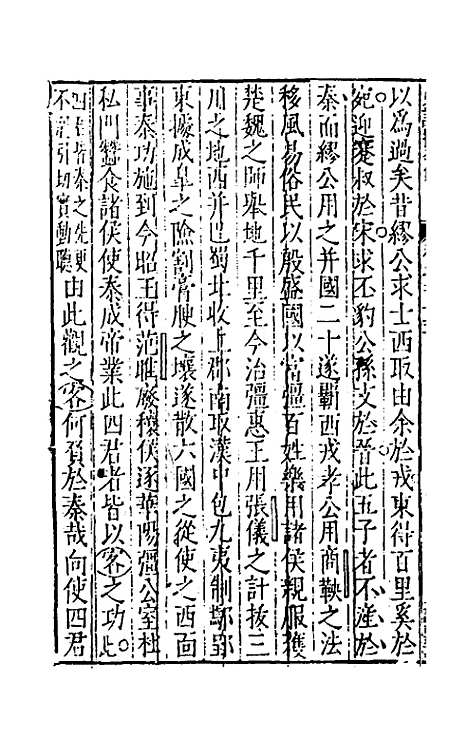 以爲過矣昔繆公求士西取由余於戎東得百里奚於
宛迎蹇叔於宋求丕豹公孫支於晉此五子者不產於
秦而繆公用之并國二十遂霸西戎孝公用商鞅之法
移風易俗民以殷盛國以富彊百姓樂用諸侯親服獲
楚魏之師舉地千里至今治彊惠王用張儀之計拔三
川之地西并巴蜀北收上郡南取漢中包九夷制鄢郢
東據成皋之險割膏腴之壤遂散六國之從使之西面
事秦功施到今昭王得范雎廢穰侯逐華陽彊公室杜
私門蠶食諸侯使秦成帝業此四君者皆以客之功此
四君皆秦之先
不引切實動聽由此觀之客何負於秦哉向使四君